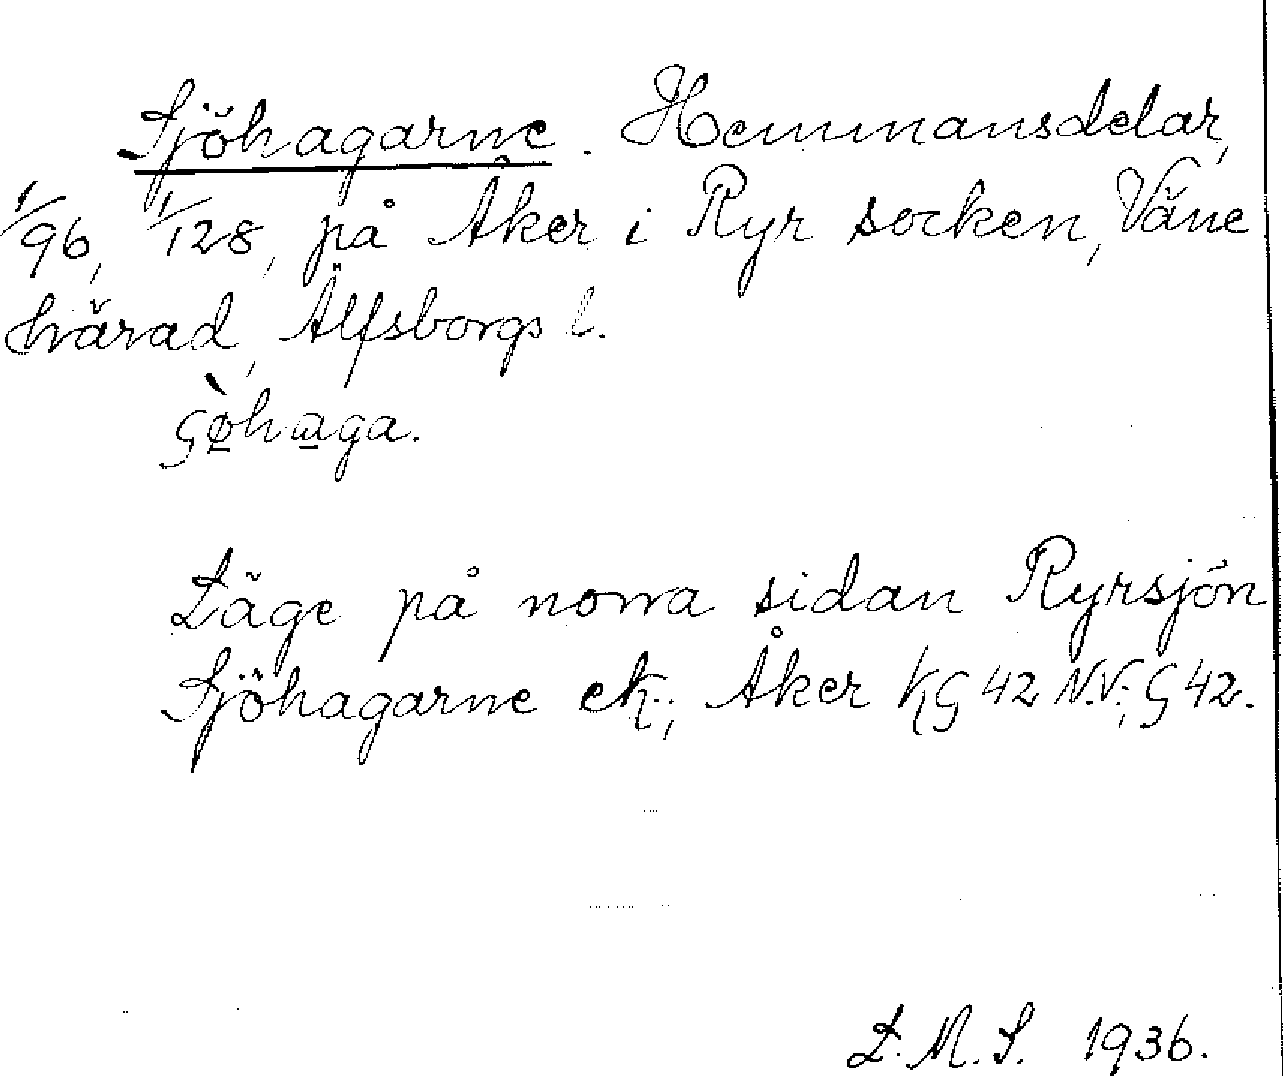 Sjöhagarne. Hemmansdelar,
1/96, 1/128, på Åker i Ryr socken, Väne
härad, Älfsborgs l.
Läge på norra sidan Ryrsjön
Sjöhagarne ek.; Åker KG 42 N.V.; G 42.
L. M. S. 1936.